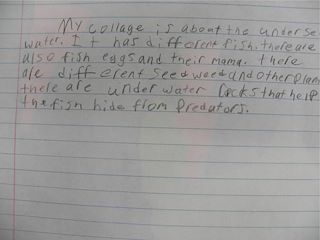 My collage is about the under se
water. It has different fish. there are
also fish eggs and their mama. there
are different seed weed and other plan
there are under water rocks that help
the fish hide from predators.